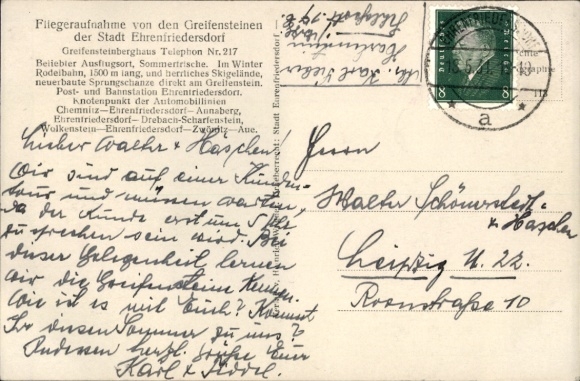 Fliegeraufnahme von den Greifensteinen
der Stadt Ehrenfriedersdorf
Greifensteinberghaus Telephon Nr. 217
Beliebter Ausflugsort, Sommerfrische. Im Winter
Rodelbahn, 1500 m lang, und herrliches Skigelände,
neuerbaute Sprungschanze direkt am Greifenstein.
Post- und Bahnstation Ehrenfriedersdorf.
Knotenpunkt der Automobillinien
Chemnitz—Ehrenfriedersdorf—Annaberg,
Ehrenfriedersdorf—Drebach-Scharfenstein,
Wolkenstein—Ehrenfriedersdorf—Zwönitz—Aue.
Lieber Walter & Häschen!
Wir sind auf einer Kunden-
tour und müssen warten,
da der Kunde erst um 5 Uhr
zu sprechen sein wird. Bei
dieser Gelegenheit lernen
wir die Greifensteine kennen.
Wie ist es mit Euch? Kommt
Ihr diesen Sommer zu uns?
Indessen herzl. Grüße Eure
Karl &
Urheberrecht: Stadt Ehrenfriedersdorf
Karl
Deutsches Reich
8 8
EHRENFRIEDERSDORF
a
Herrn
Walter
& Häschen
Leipzig N. 22.
Roonstraße 10